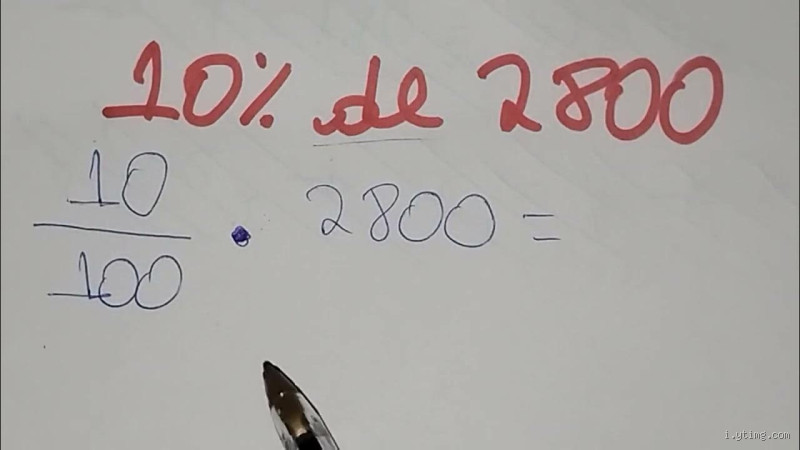 10% de 2800
10
100 · 2800 =
i.ytimg.com